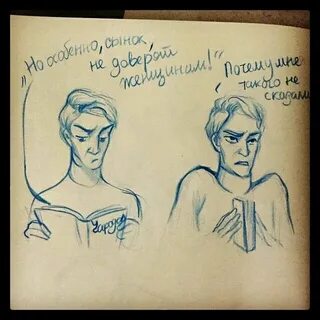 „Но особенно, сынок,
не доверяй
женщинам!"
„Почему мне
такого не
сказали
Чародол